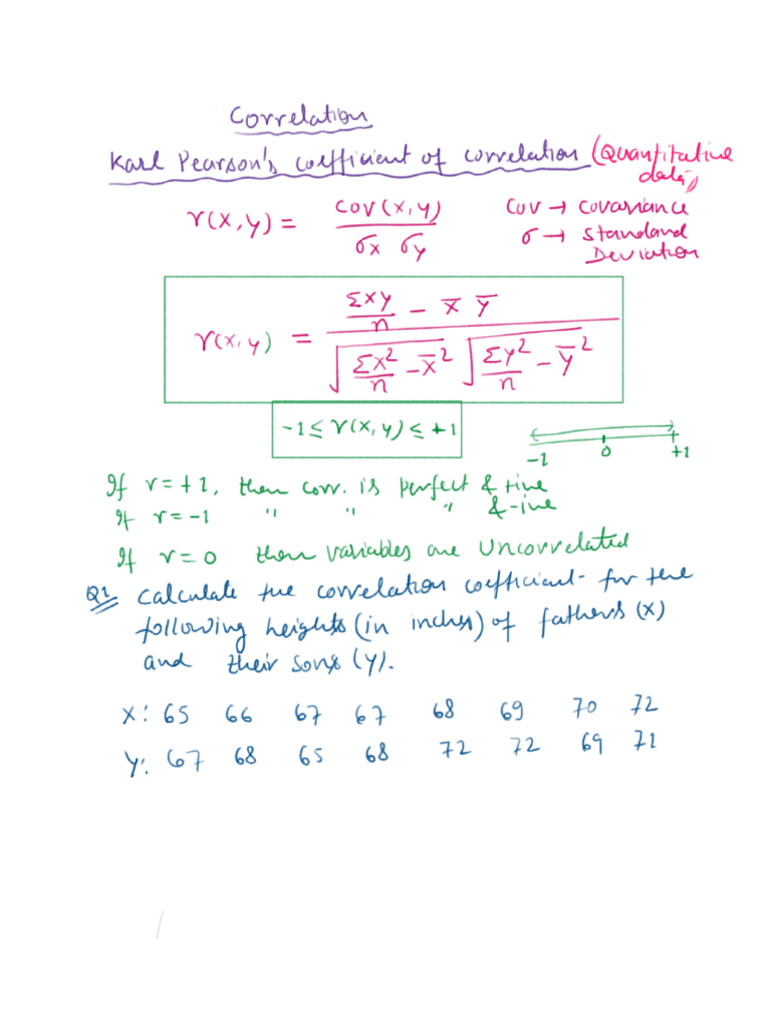 Correlation
Karl Pearson's coefficient of correlation (Quantitative data)
r(X,Y) = Cov(X,Y) / σx σy
Cov → Covariance
σ → Standard Deviation
r(X,Y) = (ΣXY/n - X̄ Ȳ) / (√(ΣX²/n - X̄²) √(ΣY²/n - Ȳ²))
-1 ≤ r(X,Y) ≤ +1
-1 0 +1
If r = +1, then corr. is perfect & +ive
If r = -1 " " " & -ive
If r = 0 then variables are Uncorrelated
Q1 Calculate the correlation coefficient for the
following heights (in inches) of fathers (X)
and their sons (Y).
X: 65 66 67 67 68 69 70 72
Y: 67 68 65 68 72 72 69 71